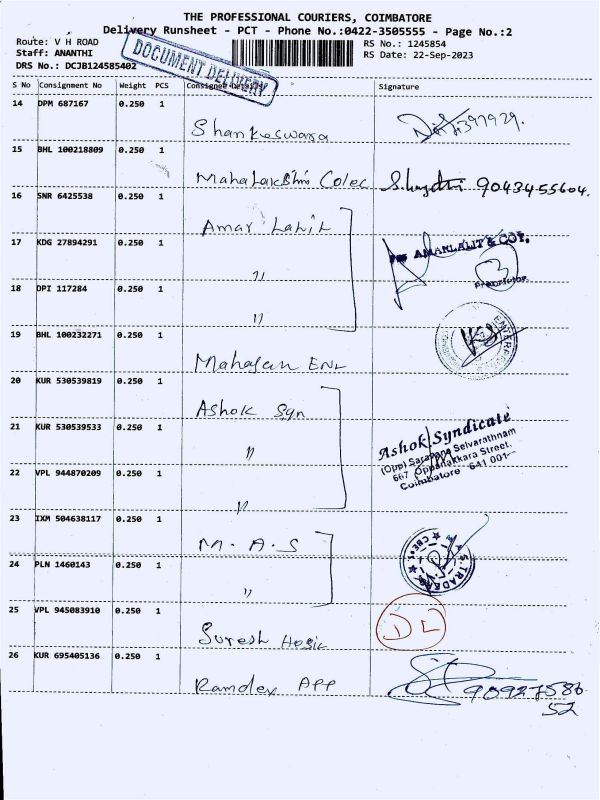 THE PROFESSIONAL COURIERS, COIMBATORE
Delivery Runsheet - PCT - Phone No.:0422-3505555 - Page No.:2
Route: V H ROAD RS No.: 1245854
Staff: ANANTHI RS Date: 22-Sep-2023
DRS No.: DCJB124585402
DOCUMENT DELIVERY
S No Consignment No Weight PCS Consignee Details Signature
14 DPM 687167 0.250 1
Shankeswara
15 BHL 100218809 0.250 1
Mahalakshmi Colec 9043455604.
16 SNR 6425538 0.250 1
Amar Lalit
17 KDG 27894291 0.250 1
AMARLALIT & COY.
"
Proprietor
18 DPI 117284 0.250 1
"
19 BHL 100232271 0.250 1
ENTERPRISES
Mahajan ENT
20 KUR 530539819 0.250 1
Ashok Syn
21 KUR 530539533 0.250 1
Ashok Syndicate
(Opp) Sarapana Selvarathnam
"
667, Oppanakkara Street,
Coimbatore - 641 001
22 VPL 944870209 0.250 1
"
23 IXM 504638117 0.250 1
M. A. S
24 PLN 1460143 0.250 1
TRADERS
"
25 VPL 945083910 0.250 1
DL
Suresh Hosie
26 KUR 695405136 0.250 1
Ramdev APP 90927586
52